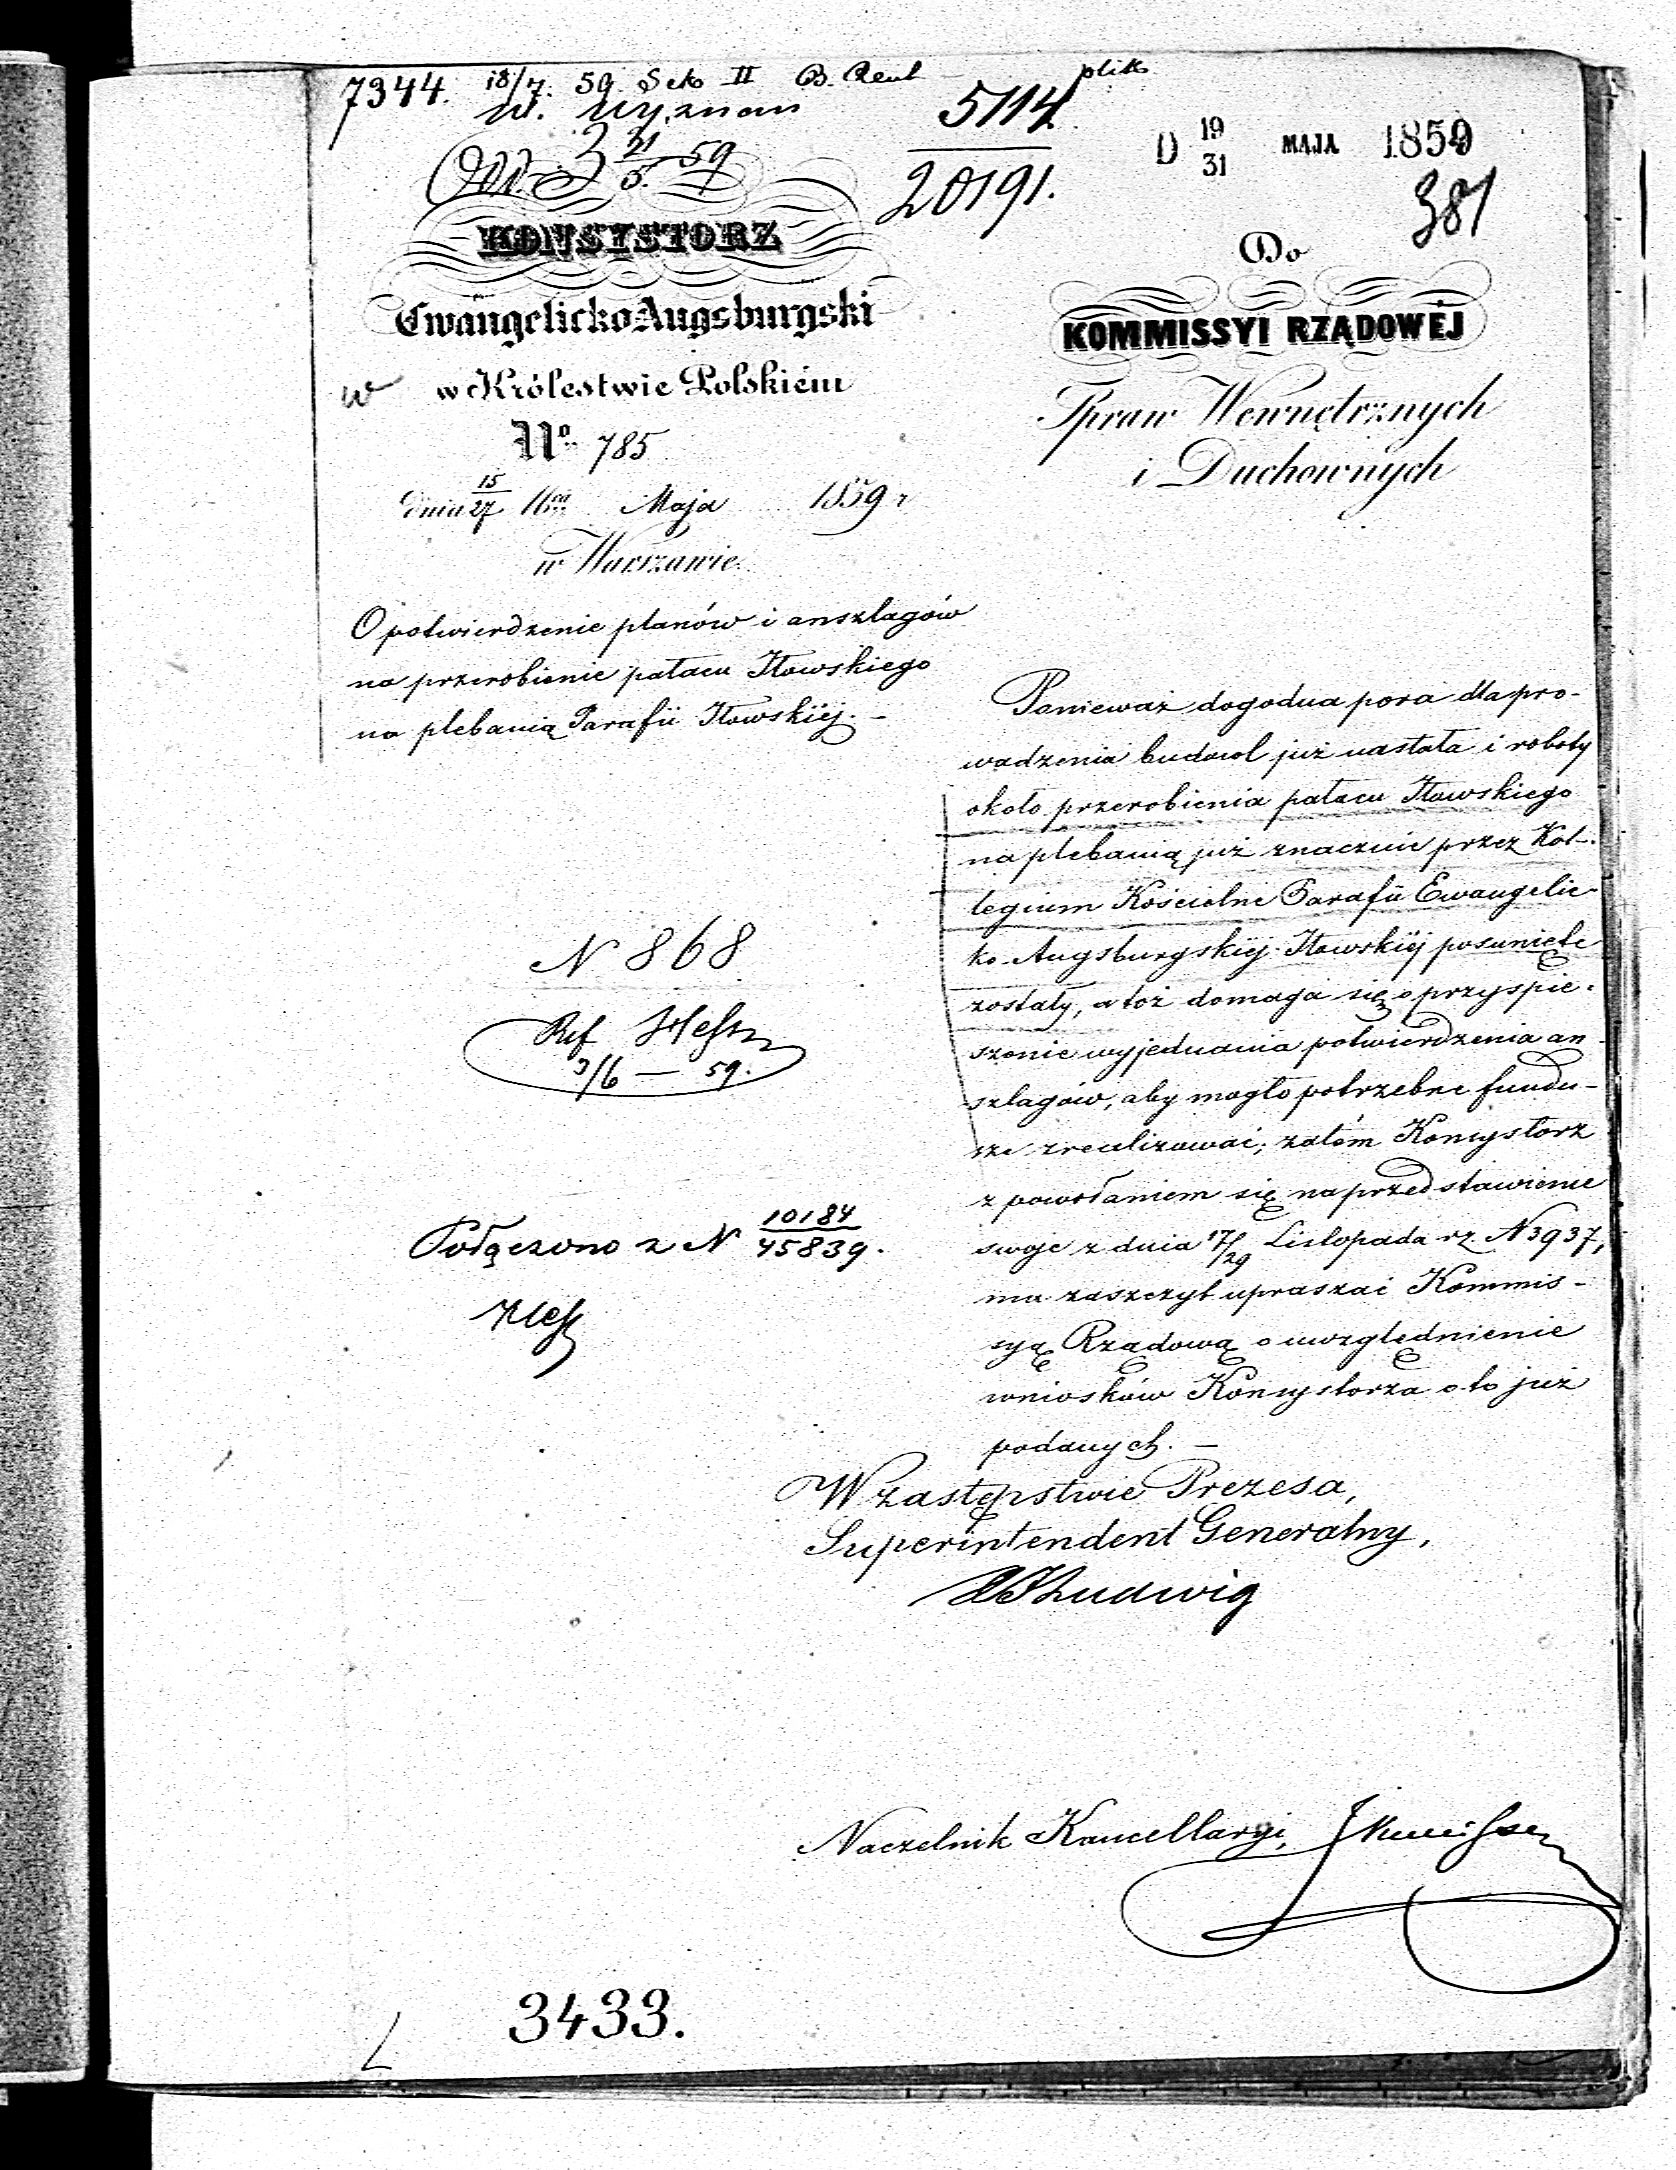 7344. 18/7. 59 Sek II
W. Wyznań
5114
20191.
D 19/31 MAJA 1859
381
31/5. 59
KONSYSTORZ
Ewangelicko Augsburgski
w Królestwie Polskiém
w
No 785
dnia 15/27 Maja 1859 r
w Warszawie.
O potwierdzenie planów i anszlagów
na przerobienie pałacu Iłowskiego
na plebanią Parafii Iłowskiéj. –
N 868
Ref Hess
3/6 — 59.
Połączono z N 10184/45839.
Hess
Do
KOMMISSYI RZĄDOWÉJ
Spraw Wewnętrznych
i Duchownych
Ponieważ dogodna pora dla pro-
wadzenia budowl już nastała i roboty
około przerobienia pałacu Iłowskiego
na plebanią już znacznie przez Kol-
legium Kościelne Parafii Ewangelic-
ko-Augsburgskiéj Iłowskiéj posunięte
zostały, a toż domaga się o przyspie-
szenie wyjednania potwierdzenia an-
szlagów, aby mogło potrzebne fundu-
sze zrealizować; zatém Konsystorz
z powołaniem się na przedstawienie
swoje z dnia 17/29 Listopada rz. N 3937,
ma zaszczyt upraszać Kommis-
syą Rządową o uwzględnienie
wniosków Konsystorza o to już
podanych. –
W zastępstwie Prezesa,
Superintendent Generalny,
Ludwig
Naczelnik Kancellaryi,
3433.